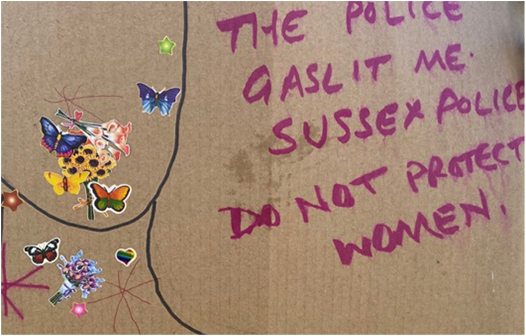 THE POLICE
GASLIT ME.
SUSSEX POLICE
DO NOT PROTECT
WOMEN.